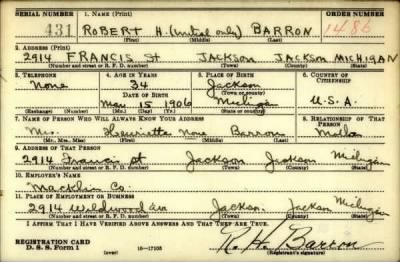 SERIAL NUMBER 1. NAME (Print) ORDER NUMBER
431 ROBERT H. (initial only) BARRON 1486
(First) (Middle) (Last)
2. ADDRESS (Print)
2914 FRANCIS St JACKSON JACKSON MICHIGAN
(Number and street or R. F. D. number) (Town) (County) (State)
3. TELEPHONE 4. AGE IN YEARS 5. PLACE OF BIRTH 6. COUNTRY OF CITIZENSHIP
None 34 Jackson
(Town or county)
DATE OF BIRTH
May 15 1906 Michigan U.S.A.
(Exchange) (Number) (Mo.) (Day) (Yr.) (State or country)
7. NAME OF PERSON WHO WILL ALWAYS KNOW YOUR ADDRESS 8. RELATIONSHIP OF THAT PERSON
Mrs. Henrietta None Barron
(Mr., Mrs., Miss) (First) (Middle) (Last)
9. ADDRESS OF THAT PERSON
2914 Francis St Jackson Jackson Michigan
(Number and street or R. F. D. number) (Town) (County) (State)
10. EMPLOYER'S NAME
Macklin Co.
11. PLACE OF EMPLOYMENT OR BUSINESS
2914 Wildwood Ave Jackson Jackson Michigan
(Number and street or R. F. D. number) (Town) (County) (State)
I AFFIRM THAT I HAVE VERIFIED ABOVE ANSWERS AND THAT THEY ARE TRUE.
REGISTRATION CARD
D. S. S. Form 1 (over) 16—17105 R. H. Barron
(Registrant's signature)